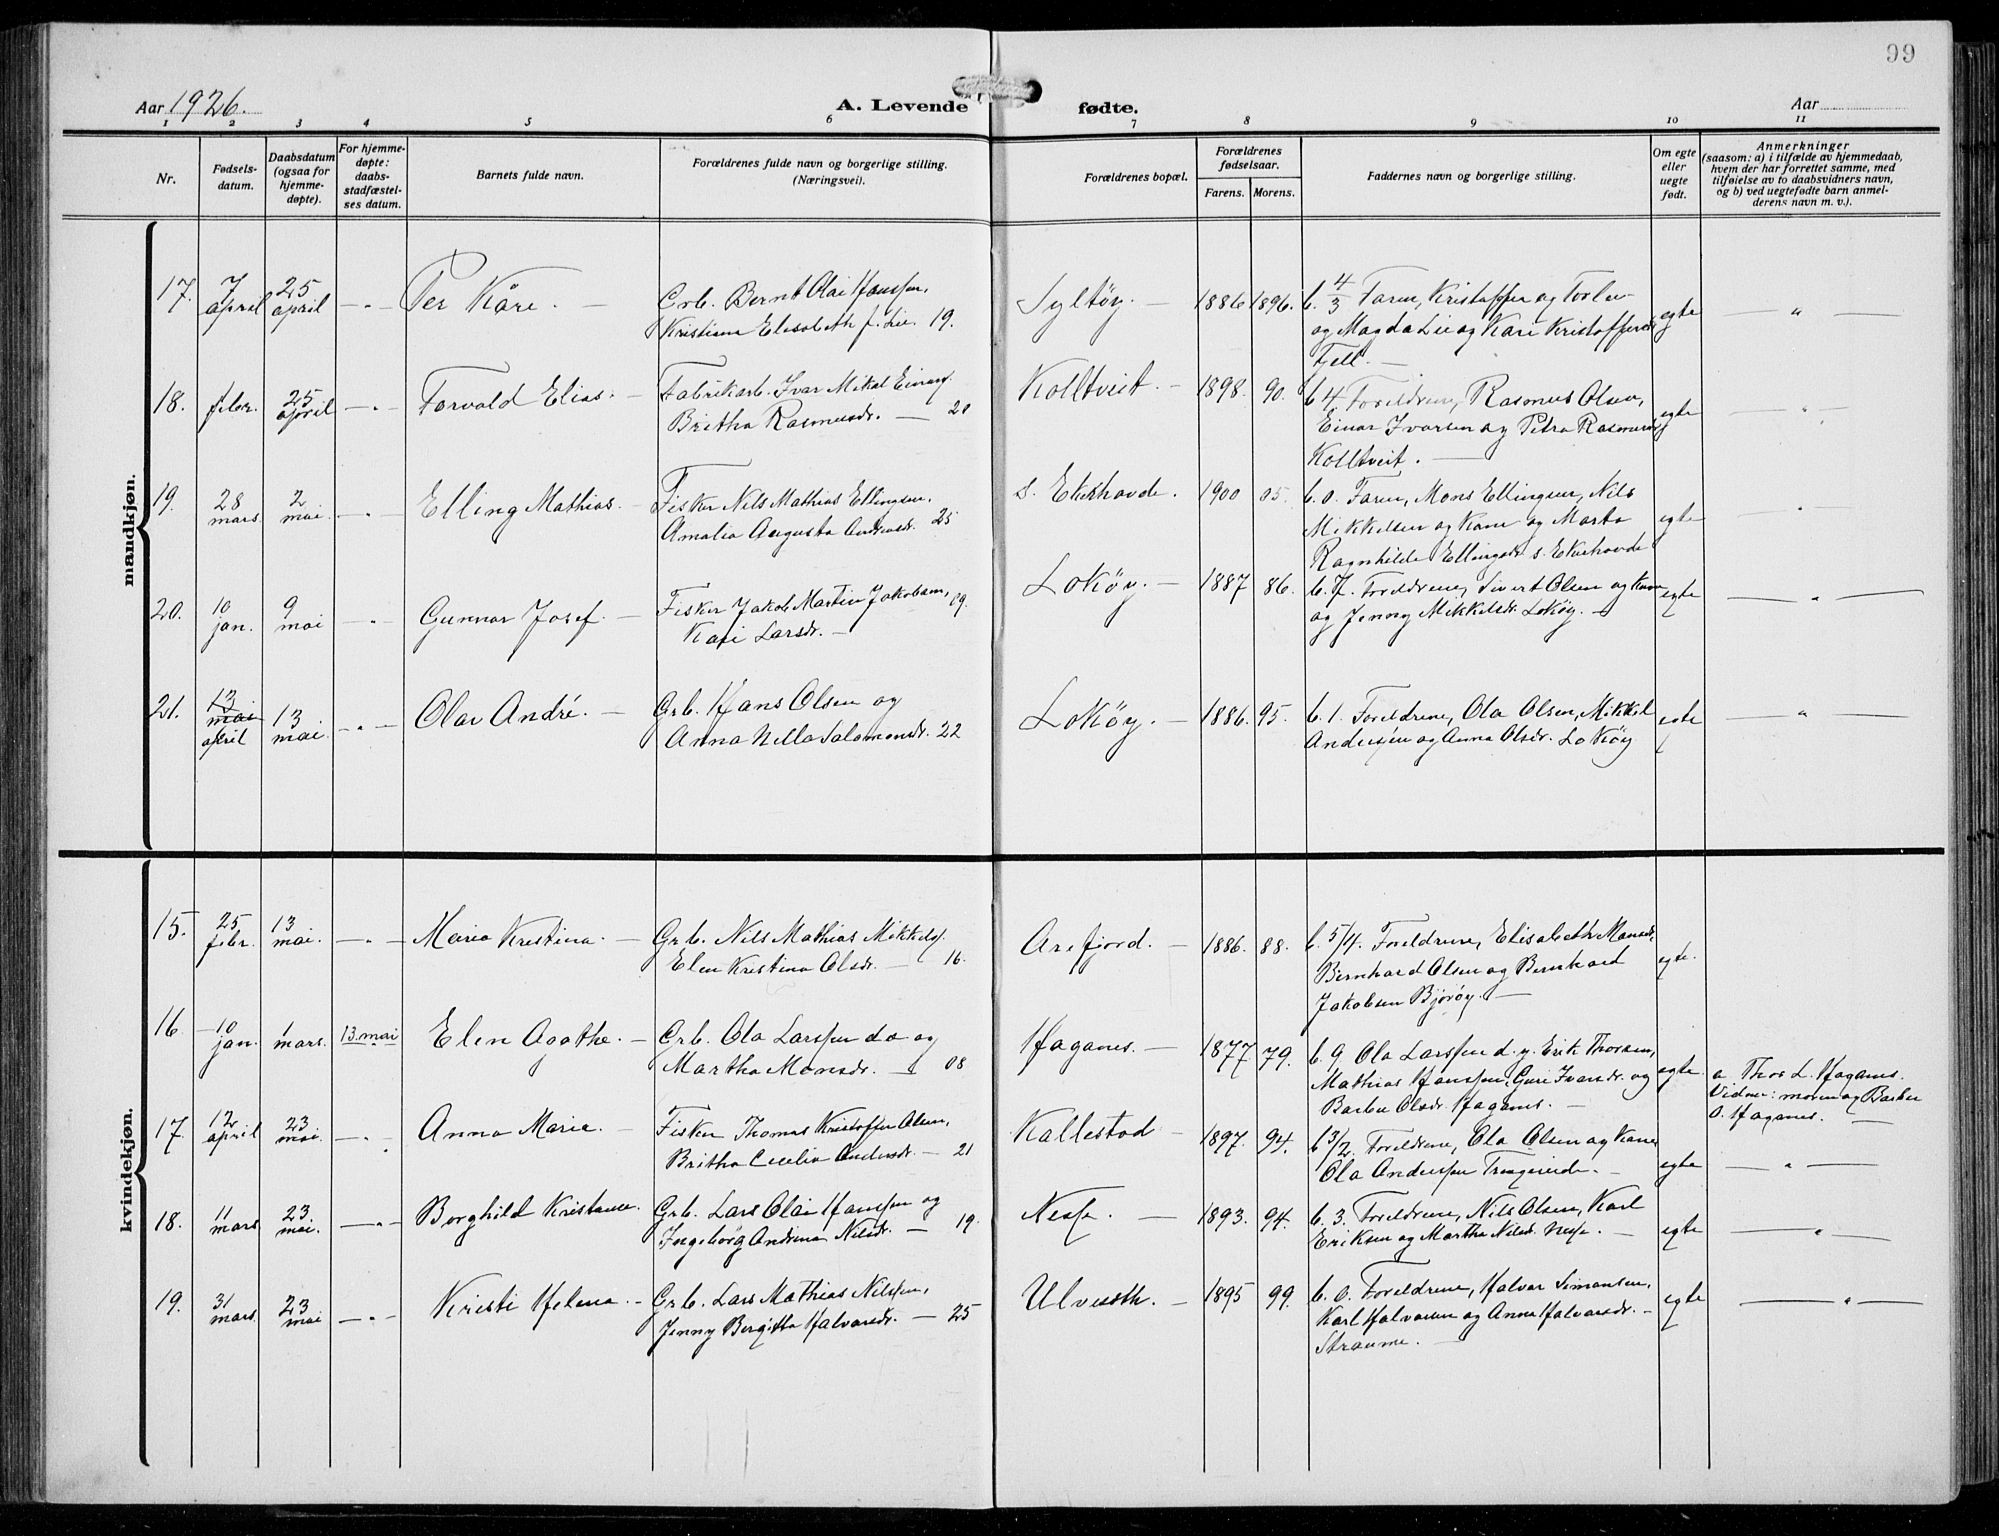 99
Aar 1926.
A. Levende fødte.
Aar
1 2 3 4 5 6 7 8 9 10 11
Nr.
Fødsels-
datum.
Daabsdatum
(ogsaa for
hjemme-
døpte).
For hjemme-
døpte:
daabs-
stadfæstel-
ses datum.
Barnets fulde navn.
Forældrenes fulde navn og borgerlige stilling.
(Næringsvei).
Forældrenes bopæl.
Forældrenes
fødselsaar.
Farens. Morens.
Faddernes navn og borgerlige stilling.
Om egte
eller
uegte
født.
Anmerkninger
(saasom: a) i tilfælde av hjemmedaab,
hvem der har forrettet samme, med
tilføielse av to daabsvidners navn,
og b) ved uegtefødte barn anmel-
derens navn m. v.).
mandkjøn.
17. 7 april 25 april - " - Per Kåre. —
Grb. Bernt Olai Hanssen,
Kristiana Elisabeth f. Lie. 19.
Syltøy. — 1886 1896.
b. 4/3 Faren, Kristoffer og Torleiv
og Magda Lie og Kari Kristoffersdr
Fjell. —
egte — " —
18. febr. 25 april — " — Torvald Elias. —
Fabrikarb. Ivar Mikal Einarsf.
Britha Rasmusdr. — 20
Kolltveit. — 1898. 90.
b 4 Foreldrene, Rasmus Olsen,
Einar Ivarsen og Petra Rasmusdr
Kolltveit. —
egte — " —
19. 28 mars 2 mai. — " — Elling Mathias. —
Fisker Nils Mathias Ellingsen,
Amalia Augusta Andreasdr. 25
s. Ekerhovde. 1900 05.
b. 0. Faren, Mons Ellingsen, Nils
Mikkelsen og Kone og Marta
Ragnhilde Ellingsdr. s. Ekerhovde
egte — " —
20. 10 jan. 9 mai — " — Gunnar Josef. —
Fisker Jakob Martin Jakobsen, 09.
Kari Larsdr. —
Lokøy. — 1887 86.
b. 7. Foreldrene, Sivert Olsen og Kone
og Jenny Mikkelsdr. Lokøy. —
egte — " —
21. 13 mai april 13 mai. — " — Olav André. —
Grb. Hans Olsen og
Anna Nilla Salomonsdr. 22
Lokøy. — 1886. 95.
b. 1. Foreldrene, Ola Olsen, Mikkel
Andersen og Anna Olsdr. Lokøy
egte — " —
kvindekjøn.
15. 25 febr. 13 mai. — " — Maria Kristina. —
Grb. Nils Mathias Mikkelsf.
Elen Kristina Olsdr. — 16.
Arefjord. — 1886. 88.
b. 5/4. Foreldrene, Elisabeth Mansdr,
Bernhard Olsen og Bernhard
Jakobsen Bjorøy. —
egte.
16. 10 jan. 1 mars. 13. mai Elen Agathe. —
Grb. Ola Larssen do og
Martha Monsdr. — 08
Haganes. — 1877 79.
b. 9. Ola Larssen d. y. Erik Thorsen,
Mathias Hanssen, Guri Ivarsdr. og
Barbu Olsdr. Haganes. —
egte. a Thos L. Haganes.
Vidner: moren og Barbu
O. Haganes. —
17. 12 april 23 mai. — " — Anna Marie. —
Fisker Thomas Kristoffer Olsen,
Britha Cecilia Andersdr. — 21
Kallestad — 1897. 94.
b 3/2. Foreldrene, Ola Olsen og Kone,
Ola Anderssen Tr
egte — " —
18. 11 mars 23 mai. — " — Borghild Kristense.
Grb. Lars Olai Hanssen og
Ingeborg Andrina Nilsdr. — 19.
Nesse. — 1893. 94.
b. 3. Foreldrene, Nils Olsen, Karl
Eriksen og Martha Nilsdr. Nesse. —
egte — " —
19. 31 mars. 23 mai — " — Kristi Helena. —
Grb. Lars Mathias Nilssen,
Jenny Bergitta Halvorsdr. — 25
Ulveseth. — 1895 99.
b. 0. Foreldrene, Halvor Simonsen,
Karl Halvorsen og Anna Halvorsdr. —
Straume. —
egte — " —